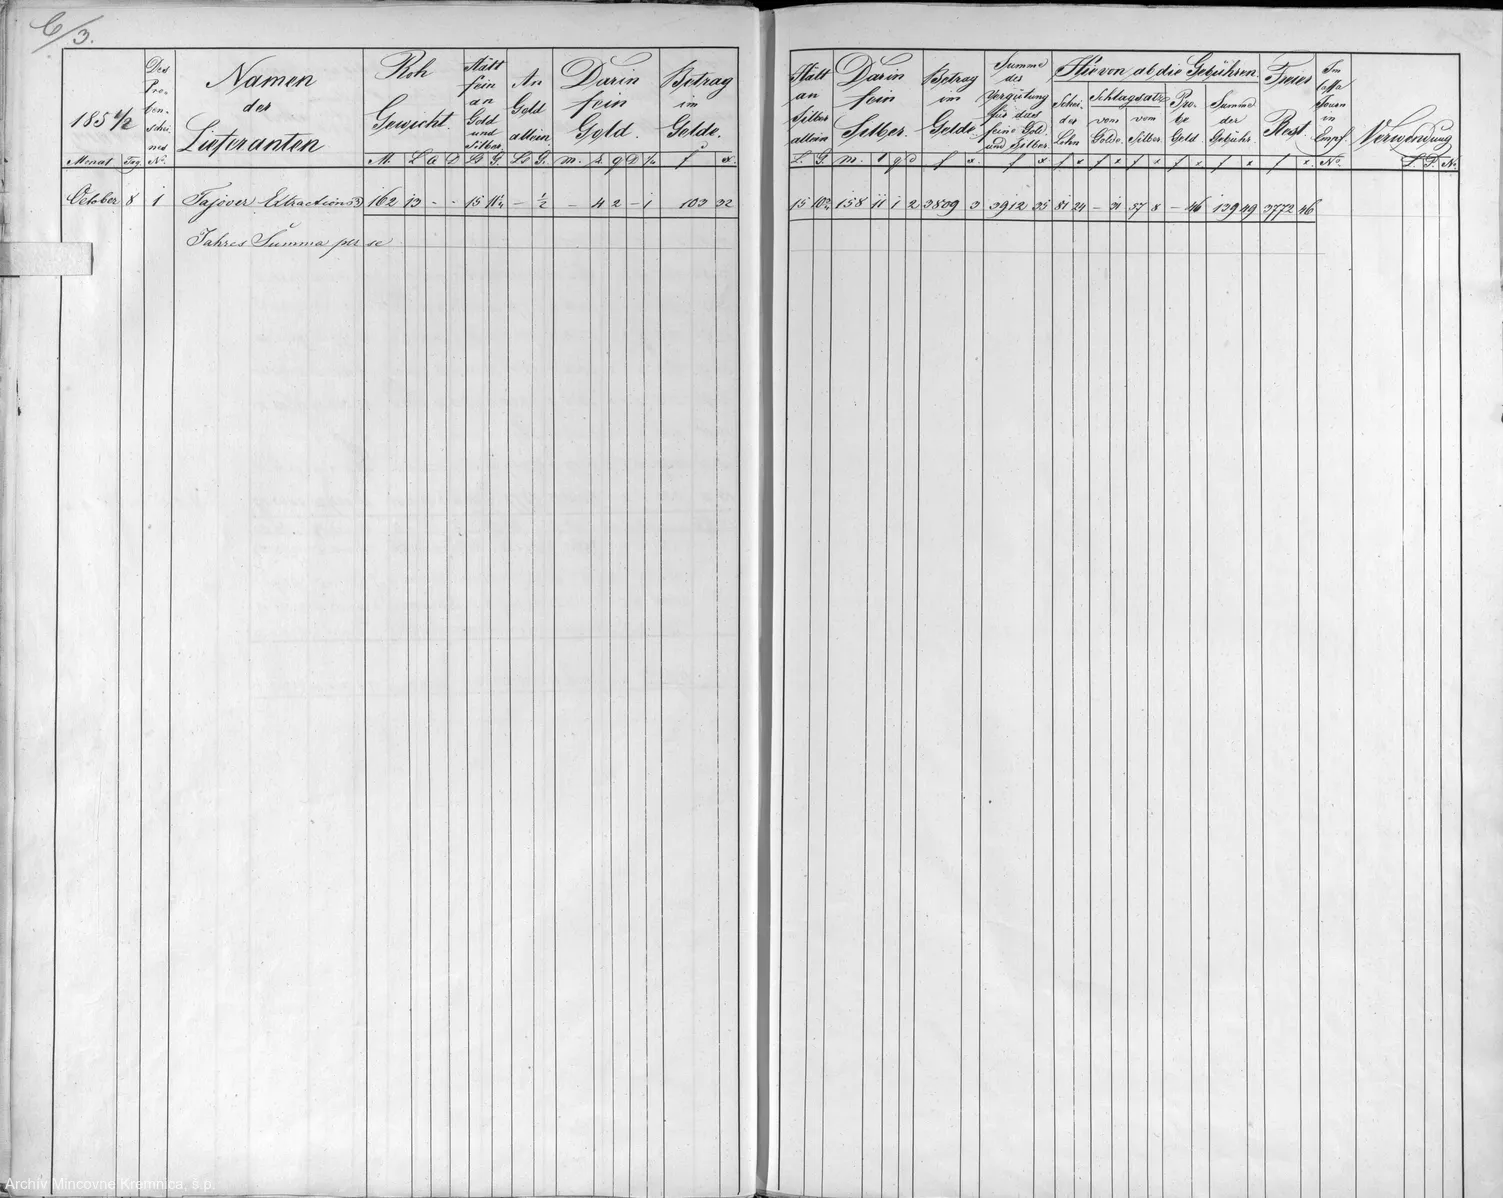 C/3.
185 1/2
Monat Tag
Des Pro- ben- schei- nes No.
Namen der Lieferanten
Roh Gewicht.
M. L Q D
Hält fein an Gold und Silber.
Lt G.
An Gold allein.
Lt G.
Darin fein Gold.
m. k q D 1/10
Betrag im Gelde.
f x.
Hält an Silber allein
L. G.
Darin fein Silber.
m. l q d
Betrag im Gelde
f x.
Summe der Vergütung für das feine Gold und Silber.
f x
Hievon ab die Gebühren.
Schei- der Lohn
f x
Schlagsatz
vom Golde.
f x
vom Silber.
f x
Pro- be Geld
f x
Summe der Gebühr.
f x
Freier Rest.
f x.
Im Journ in Empf.
No.
Verwendung
No
October 8 1 Tajover Extractions 162 13 - - 15 - 1/2 - 4 2 - 1 103 32 15 158 11 1 2 3809 3 3912 35 81 24 - 31 57 8 - 46 139 49 3772 46
Jahres Summa per se
Archív Mincovne Kremnica, š.p.